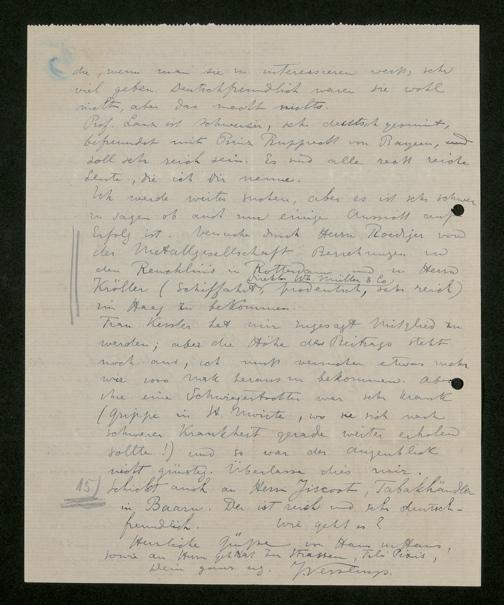 die, wenn man sie zu interessieren weiß, sehr
viel geben. Deutschfreundlich waren sie wohl
nicht, aber das macht nichts.
Prof. Lanz ist Schweizer, sehr deutsch gesinnt,
befreundet mit Prinz Rupprecht von Bayern, und
soll sehr reich sein. Es sind alle recht reiche
Leute, die ich Dir nenne.
Ich werde weiter suchen, aber es ist sehr schwer
zu sagen ob auch nur einige Aussicht auf
Erfolg ist. Versuche durch Herrn Roediger von
der Metallgesellschaft Beziehungen zu
den in Rotterdam und zu Herrn
Direktor Wm Müller & Co
Kröller (Schiffahrt, prodeutsch, sehr reich)
im Haag zu bekommen.
Frau Kessler hat mir zugesagt Mitglied zu
werden; aber die Höhe des Beitrags steht
noch aus, ich muß versuchen etwas mehr
wie 100 Mark heraus zu bekommen. Aber
ihre eine Schwiegertochter war sehr krank
(Grippe in St Moritz, wo sie sich nach
schwerer Krankheit gerade weiter erholen
sollte!) und so war der Augenblick
nicht günstig. Überlasse dies mir.
15) Schickt auch an Herrn Tabakhändler
in Baarn. Der ist reich und sehr deutsch-
freundlich. Wie geht es?
Herzliche Grüße von Haus zu Haus,
sowie an Herrn zu Strassen,
Dein ganz erg.